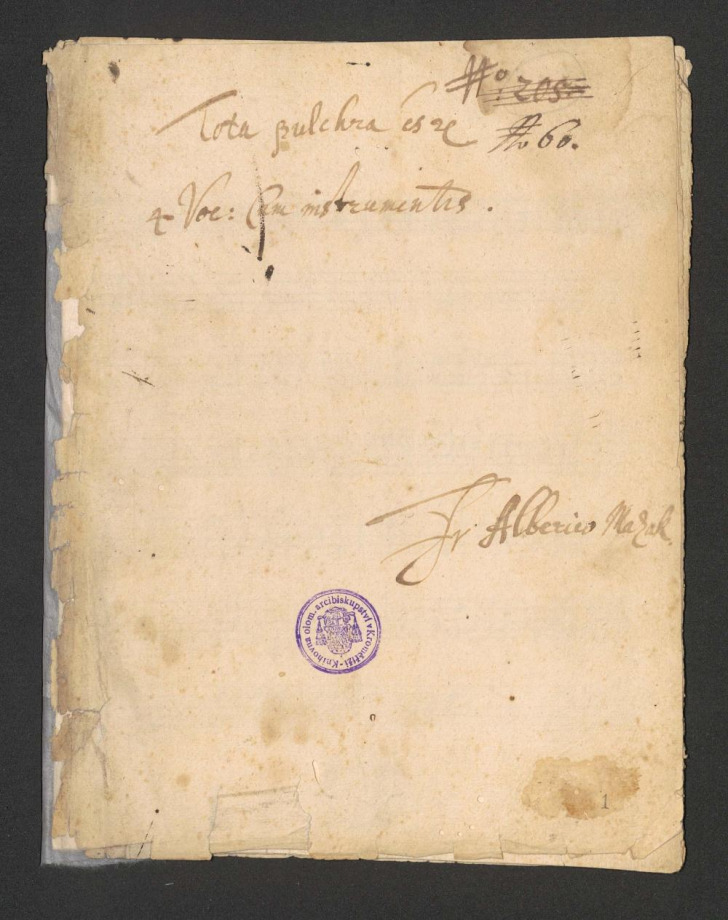 No: 205
Tota pulchra es &c
No 60.
4 Voc: Cum instrumentis.
Fr. Alberico Mazak
Knihovna olom. arcibiskupství v Kroměříži -
1